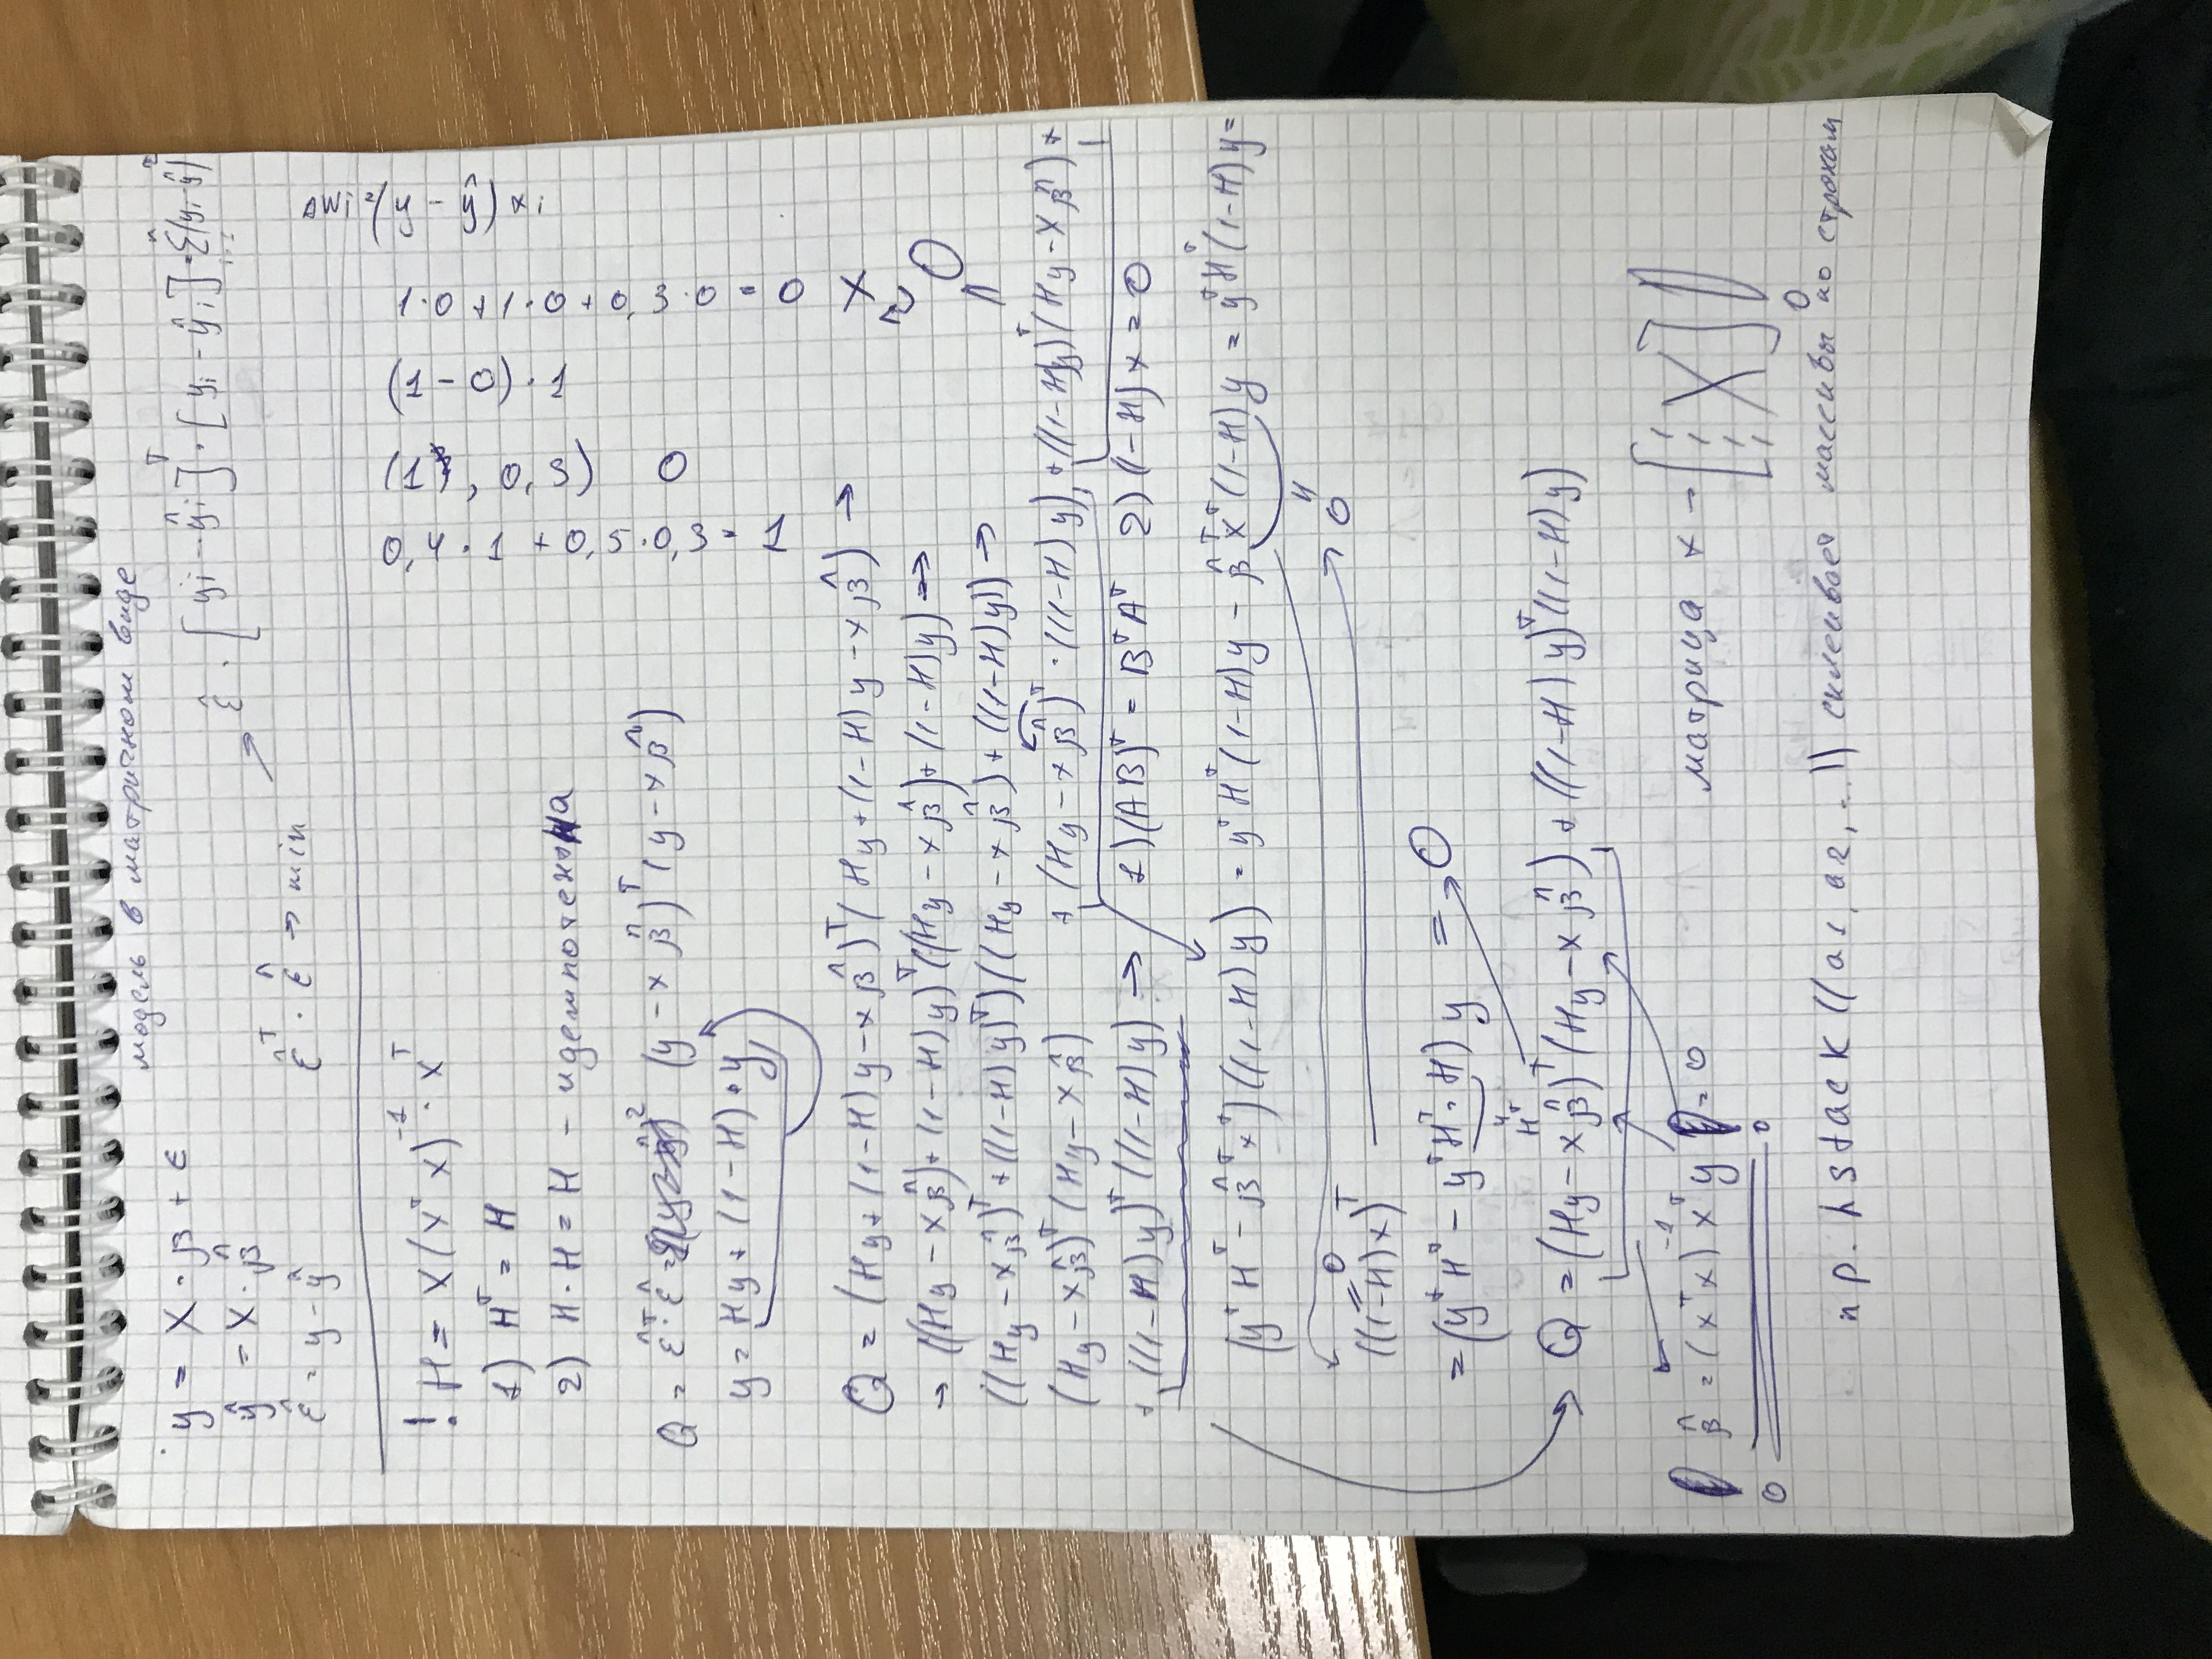 модель в матричном виде
y = X · β + ε
ŷ = X · β̂
ε̂ = y - ŷ
ε̂ᵀ · ε̂ → min
ε̂ · [yi - ŷi]ᵀ · [yi - ŷi] = Σ(yi - ŷi)²
ΔWi = (y - ŷ) xi
! H = X(XᵀX)⁻¹ · Xᵀ
1) Hᵀ = H
2) H · H = H - идемпотентна
1·0 + 1·0 + 0,3·0 = 0
(1 - 0) · 1
(1, 0,3) 0
0,4 · 1 + 0,5 · 0,3 = 1
Q = ε̂ᵀ · ε̂ = (y - xβ̂)ᵀ(y - xβ̂)
y = Hy + (1-H) · y
Q = (Hy + (1-H)y - xβ̂)ᵀ(Hy + (1-H)y - xβ̂) →
→ ((Hy - xβ̂) + (1-H)y)ᵀ((Hy - xβ̂) + (1-H)y) →
((Hy - xβ̂)ᵀ + ((1-H)y)ᵀ)((Hy - xβ̂) + ((1-H)y)) →
(Hy - xβ̂)ᵀ(Hy - xβ̂) + (Hy - xβ̂)ᵀ · ((1-H)y) + ((1-H)y)ᵀ(Hy - xβ̂) +
+ ((1-H)y)ᵀ((1-H)y) → 1)(AB)ᵀ = BᵀAᵀ 2)(1-H)x = 0
(yᵀHᵀ - β̂ᵀxᵀ)((1-H)y) = yᵀHᵀ(1-H)y - β̂ᵀxᵀ(1-H)y = yᵀHᵀ(1-H)y =
((1-H)x)ᵀ
0
= (yᵀHᵀ - yᵀHᵀ · H)y = 0
Hᵀ
Q = (Hy - xβ̂)ᵀ(Hy - xβ̂) + ((1-H)y)ᵀ((1-H)y)
β̂ = (xᵀx)⁻¹xᵀy = 0
матрица x - [1 1 1 X]
np.hstack((a1, a2, ...)) склеивает массивы по строкам